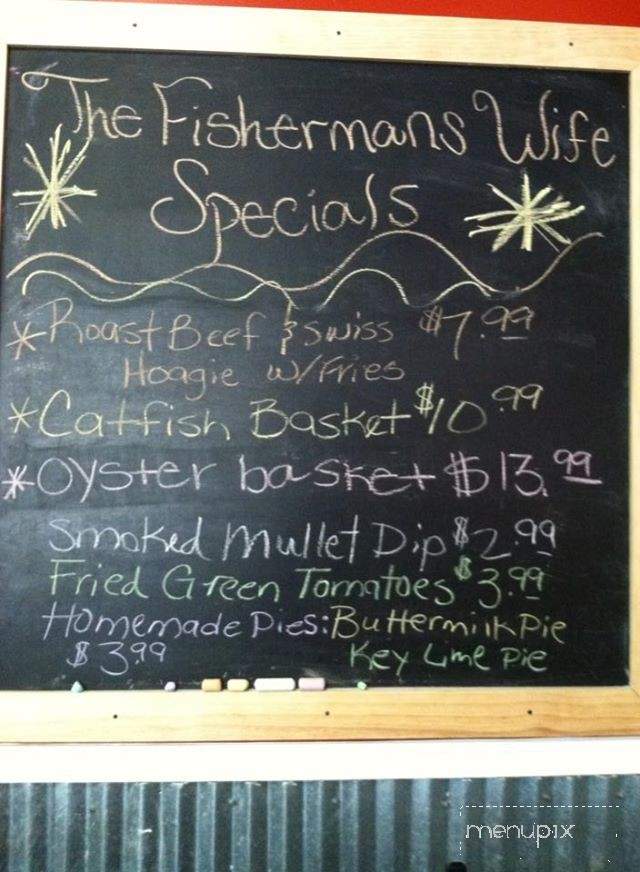 The Fishermans Wife
Specials
*Roast Beef & Swiss $7.99
Hoagie w/Fries
*Catfish Basket $10.99
*Oyster basket $13.99
Smoked Mullet Dip $2.99
Fried Green Tomatoes $3.99
Homemade Pies: Buttermilk Pie
$3.99 Key Lime Pie
menupix